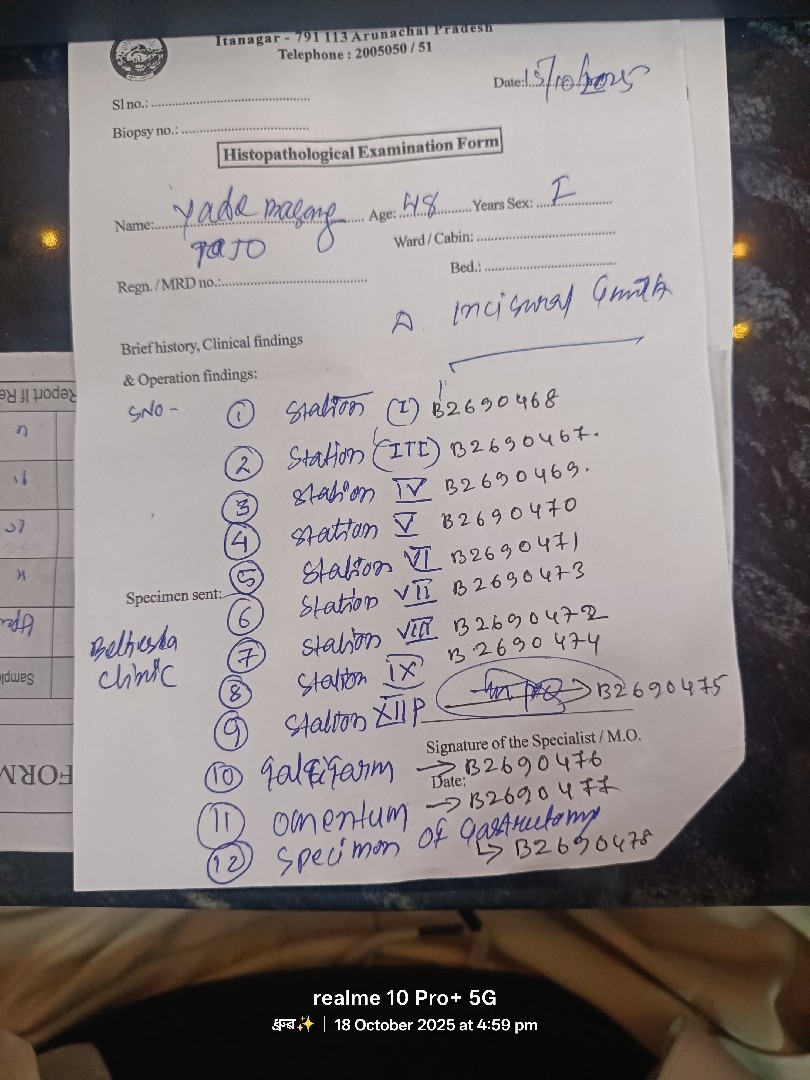 Itanagar - 791 113 Arunachal Pradesh
Telephone : 2005050 / 51
Date: 15/10/2025
Sl no.:
Biopsy no.:
Histopathological Examination Form
Name: Age: 48 Years Sex:
TAJO
Ward / Cabin:
Regn. / MRD no.: Bed.:
Brief history, Clinical findings
& Operation findings:
SNO -
1 Station (I) B2690468
2 Station (III) B2690467.
3 Station IV B2690469.
4 Station V B2690470
5 Station VI B2690471
6 Station VII B2690473
7 Station VIII B2690472
8 Station IX B2690474
9 Station XII P B2690475
Specimen sent:
Clinic
Signature of the Specialist / M.O.
10 → B2690476
Date:
11 omentum → B2690477
12 Specimen of Gastrectomy
↳ B2690478
Report If Re
FORM
realme 10 Pro+ 5G
ধ্রুব✨ | 18 October 2025 at 4:59 pm